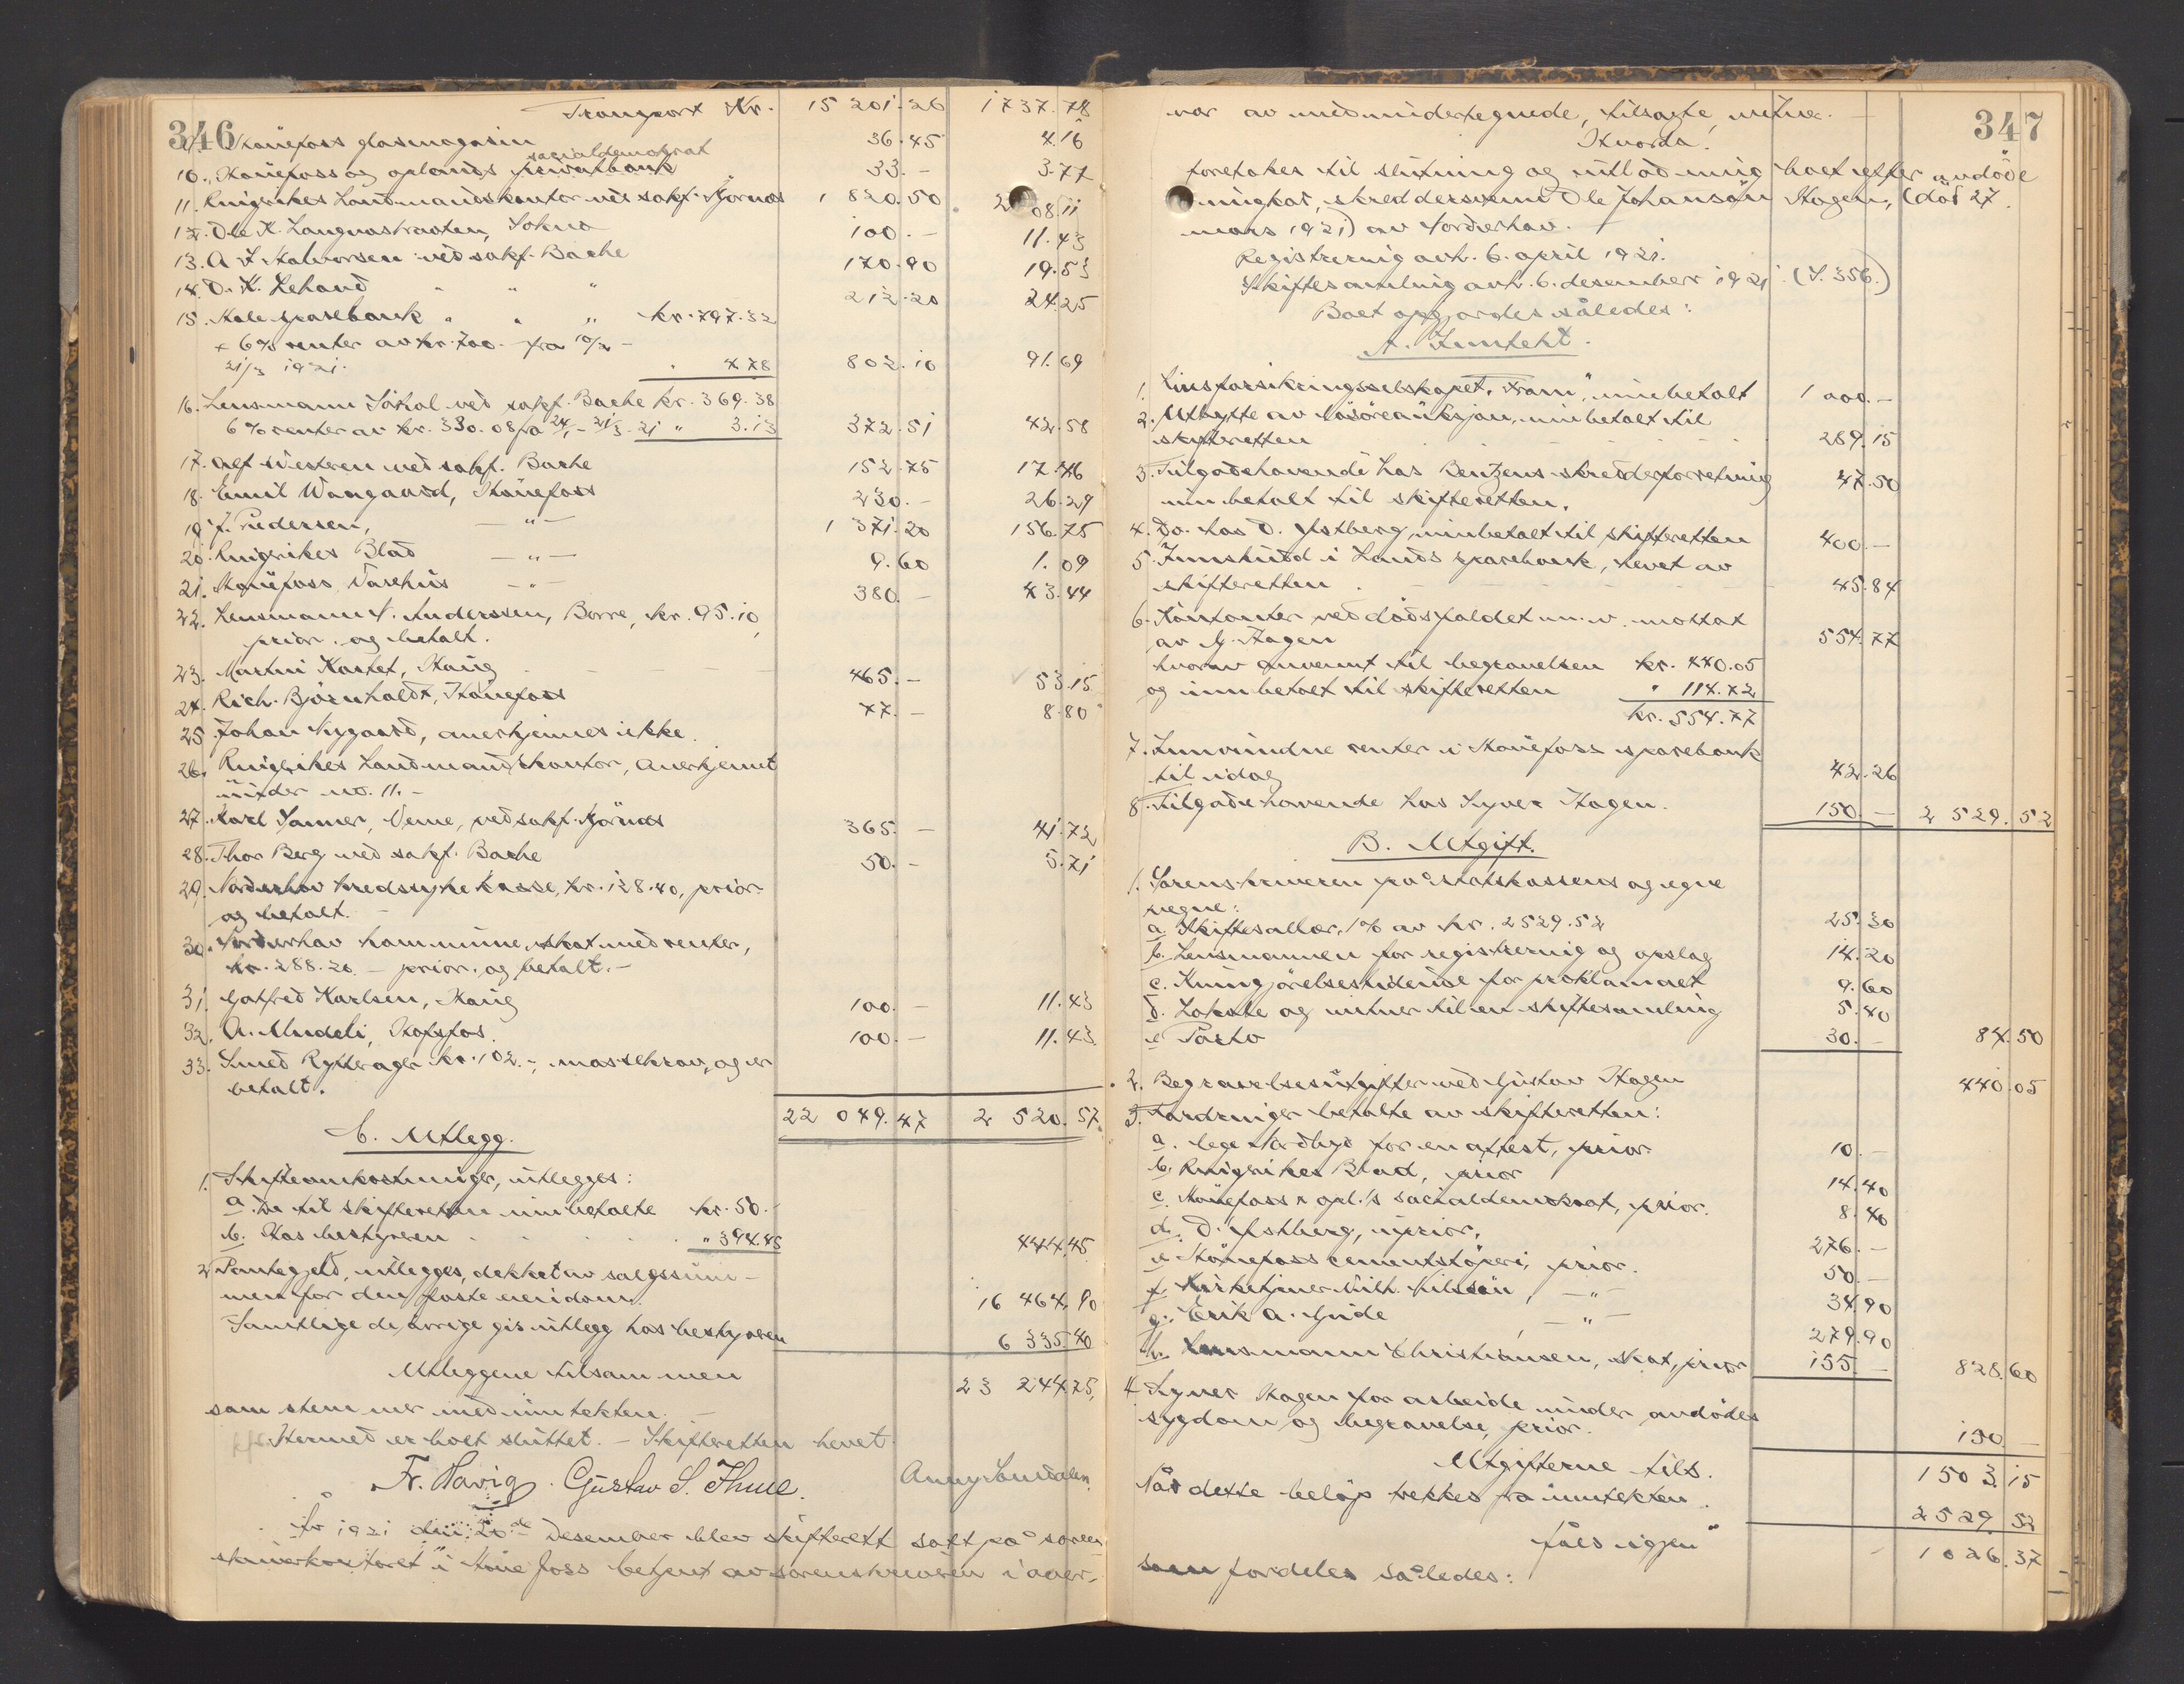 346
Transport Kr. 15 201.26 1737.78
9. Hønefoss glasmagasin 36.45 4.16
socialdemokrat
10. Hønefoss og oplands privatbank 33.- 3.77
11. Ringerikes Landmandskontor ved sakf. Hjørnås 1 820.50 208.11
12. Ole K. Langnesstraaten, Sokna 100.- 11.43
13. A. T. Halvorsen ved sakf. Bache 170.90 19.53
14. O. K. Lehand " " " 212.20 24.25
15. Hole sparebank " " " kr. 797.32
+ 6% renter av kr. 700.- fra 10/2 -
21/3 1921. " 4.78 802.10 91.69
16. Lensmann Sørhol ved sakf. Bache kr. 369.38
6% renter av kr. 330.08 fra 24/1 - 21/3 - 21 " 3.13 372.51 42.58
17. Alf Western ved sakf. Bache 152.75 17.46
18. Emil Waagaard, Hønefoss 230.- 26.29
19. J. Pedersen, -"- 1 371.20 156.75
20. Ringerikes Blad -"- 9.60 1.09
21. Hønefoss Varehus -"- 380.- 43.44
22. Lensmann A. Anderssen, Borre, kr. 95.10,
prior. og betalt.
23. Martin Hartet, Haug 465.- 53.15
24. Rich. Bjørnholdt, Hønefoss 77.- 8.80
25. Johan Nygaard, anerkjennes ikke.
26. Ringerikes Landmandskontor, anerkjennt
under no. 11.-
27. Karl Sanner, Veme, ved sakf. Hjørnås 365.- 41.72
28. Thor Berg ved sakf. Bache 50.- 5.71
29. Norderhov kredssykekasse, kr. 128.40, prior.
og betalt.-
30. Norderhov kommune, skat med renter,
kr. 288.20.- prior. og betalt.-
31. Gotfred Karlsen, Haug 100.- 11.43
32. A. Mudeli, Hofsfos. 100.- 11.43
33. Smed Rytterager kr. 102.-, massekrav, og er
betalt.
22 049.47 2 520.57
C. Utlegg.
1. Skifteomkostninger, utlegges:
a. De til skifteretten innbetalte kr. 50.-
b. Hos bestyreren " 394.45 444.45
2. Pantegjeld, utlegges, dekket av salgssum-
men for den faste eiendom. 16 464.90
Samtlige de øvrige gis utlegg hos bestyreren 6 335.40
Utleggene tilsammen 23 244.75,
som stemmer med inntekten.-
Hermed er boet sluttet.- Skifteretten hevet.
Fr. Havig. Gustav S. Thue. Anny Sandalen
År 1921 den 20de desember blev skifterett satt på soren-
skriverkontoret i Hønefoss betjent av sorenskriveren i nær-
347
vær av medundertegnede, tilsagte vitner.-
Hvorda:
foretokes til slutning og utlodning boet efter avdøde
ungkar, skreddersvend Ole Johansøn Hagen, (død 27.
mars 1921) av Norderhov.-
Registrering avh. 6. april 1921.
Skiftesamling avh. 6. desember 1921. (S. 356.)
Boet opgjordes således:
A. Inntekt.
1. Livsforsikringsselskapet "Fram", innbetalt 1 000.-
2. Utbytte av løsøreauksjon, innbetalt til
skifteretten 289.15
3. Tilgodehavende hos Bentzens skredderforretning
innbetalt til skifteretten. 47.50
4. Do. hos O. Østberg, innbetalt til skifteretten 400.-
5. Innskudd i Lands sparebank, hevet av
skifteretten 45.84
6. Kontanter ved dødsfaldet m. v. mottat
av G. Hagen 554.77
hvorav anvendt til begravelsen kr. 440.05
og innbetalt til skifteretten " 114.72
kr. 554.77
7. Innvundne renter i Hønefoss sparebank
til idag 42.26
8. Tilgodehavende hos Syver Hagen. 150.- 2 529.52
B. Utgift.
1. Sorenskriveren på statskassens og egne
vegne:
a. Skiftesallær, 1% av kr. 2529.52 25.30
b. Lensmannen for registrering og opslag 14.20
c. Kungjørelsestidende for proklamaet 9.60
d. Lokale og vitner til en skiftesamling 5.40
e. Porto 30.- 84.50
2. Begravelsesutgifter ved Gustav Hagen 440.05
3. Fordringer betalte av skifteretten:
a. læge Nordbyd for en attest, prior. 10.-
b. Ringerikes Blad, prior 14.40
c. Hønefoss & opl.'s socialdemokrat, prior. 8.40
d. O. Østberg, uprior. 276.-
e. Hønefoss cementstøperi, prior. 50.-
f. Kirketjener Vilh. Nilssön, -"- 34.90
g. Erik A. Gude, -"- 279.90
h. Lensmann Christiansen, skat, prior 155.- 828.60
4. Syver Hagen for arbeide under avdødes
sygdom og begravelse, prior. 150.-
Utgifterne tils. 1503.15
Når dette beløp trekkes fra inntekten 2529.52
fåes igjen 1026.37
som fordeles således: